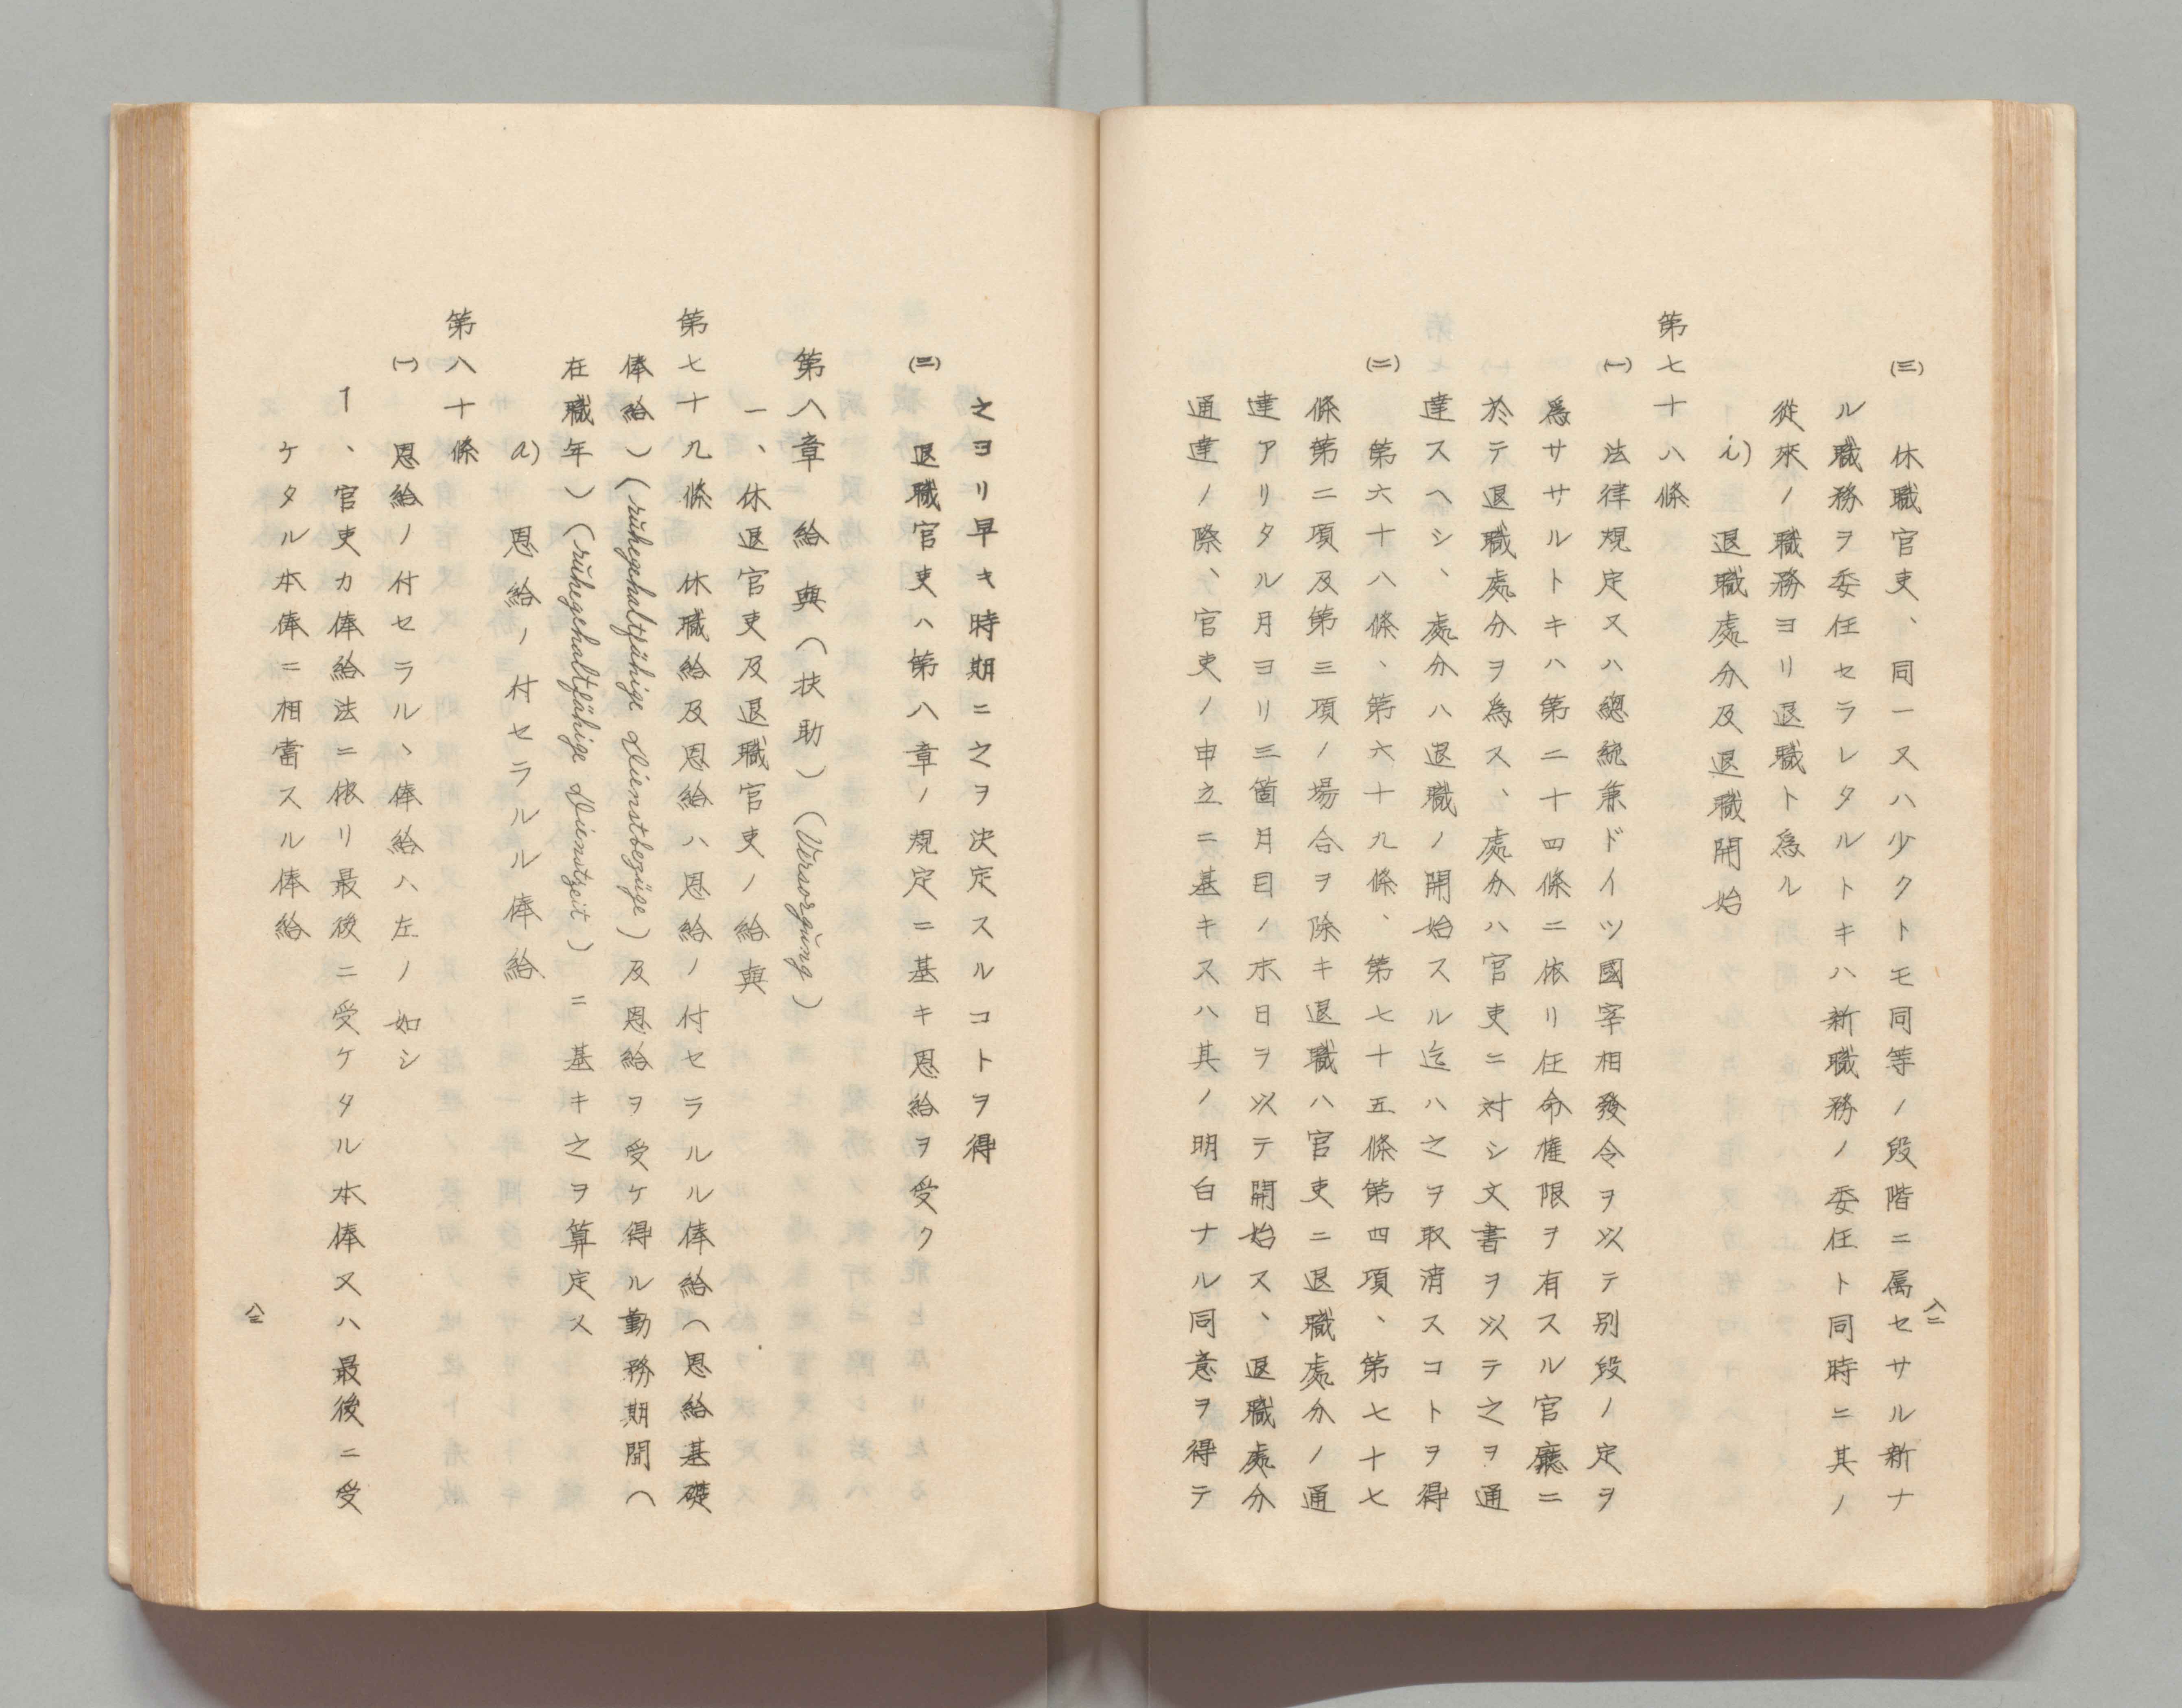 (三)　休職官吏、同一又ハ少クトモ同等ノ段階ニ属セサル新ナ
ル職務ヲ委任セラレタルトキハ新職務ノ委任ト同時ニ其ノ
從來ノ職務ヨリ退職ト爲ル
i)　退職處分及退職開始
第七十八條
(一)　法律規定又ハ總統兼ドイツ國宰相發令ヲ以テ別段ノ定ヲ
爲ササルトキハ第二十四條ニ依リ任命權限ヲ有スル官廳ニ
於テ退職處分ヲ為ス、處分ハ官吏ニ対シ文書ヲ以テ之ヲ通
達スヘシ、處分ハ退職ノ開始スル迄ハ之ヲ取消スコトヲ得
(二)　第六十八條、第六十九條、第七十五條第四項、第七十七
條第二項及第三項ノ場合ヲ除キ退職ハ官吏ニ退職處分ノ通
達アリタル月ヨリ三箇月目ノ末日ヲ以テ開始ス、退職處分
通達ノ際、官吏ノ申立ニ基キスハ其ノ明白ナル同意ヲ得テ
八二
之ヨリ早キ時期ニ之ヲ決定スルコトヲ得
(三)　退職官吏ハ第八章ノ規定ニ基キ恩給ヲ受ク
第八章　給與(扶助)(Versorgŭng)
一、休退官吏及退職官吏ノ給與
第七十九條　休職給及恩給ハ恩給ノ付セラルル俸給(恩給基礎
俸給)(rŭhegehaltfähige Dienstbezüge)及恩給ヲ受ケ得ル勤務期間(
在職年)(rŭhegehaltfähige Dienstzeit)ニ基キ之ヲ算定ス
a)　恩給ノ付セラルル俸給
第八十條
(一)　恩給ノ付セラルヽ俸給ハ左ノ如シ
1、官吏カ俸給法ニ依リ最後ニ受ケタル本俸又ハ最後ニ受
ケタル本俸ニ相當スル俸給
八三